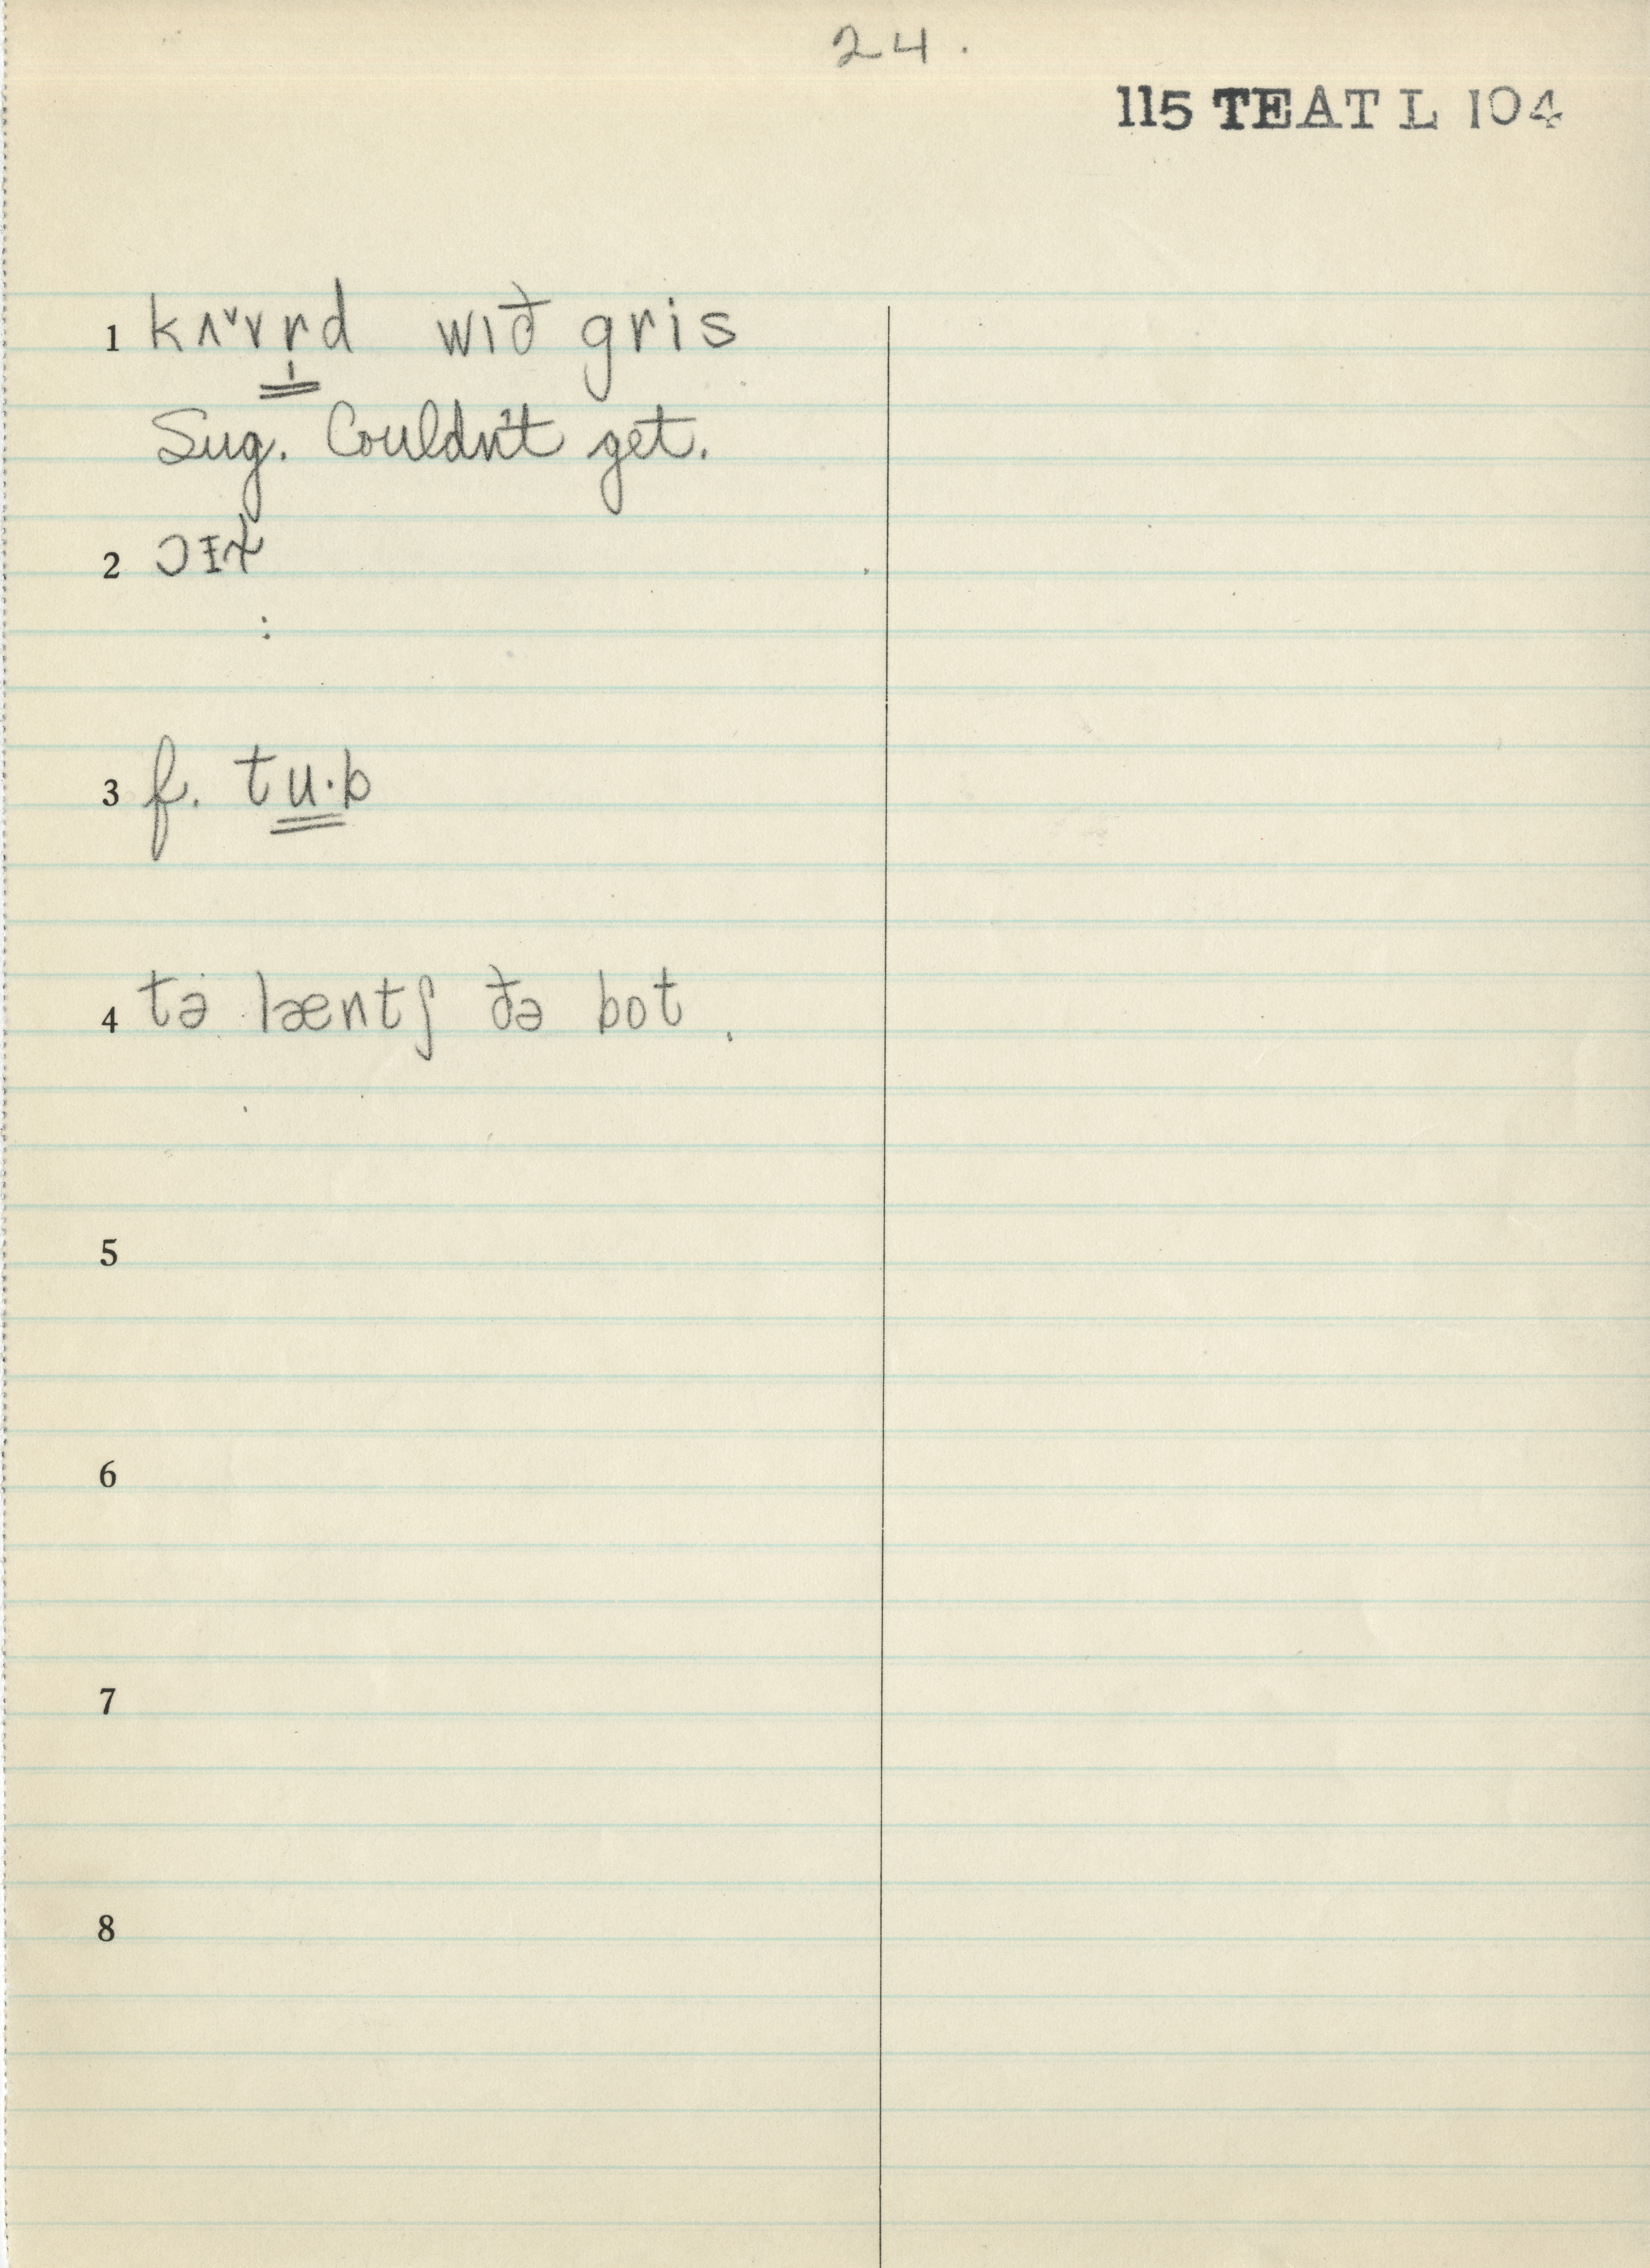 24.
115 TEATL 104
1 kʌˇvr̩d wɪð gris
Sug. Couldn't get.
2 ɔɪɫ
3 f. tu·b
4 tə læntʃ ðə bot.
5
6
7
8